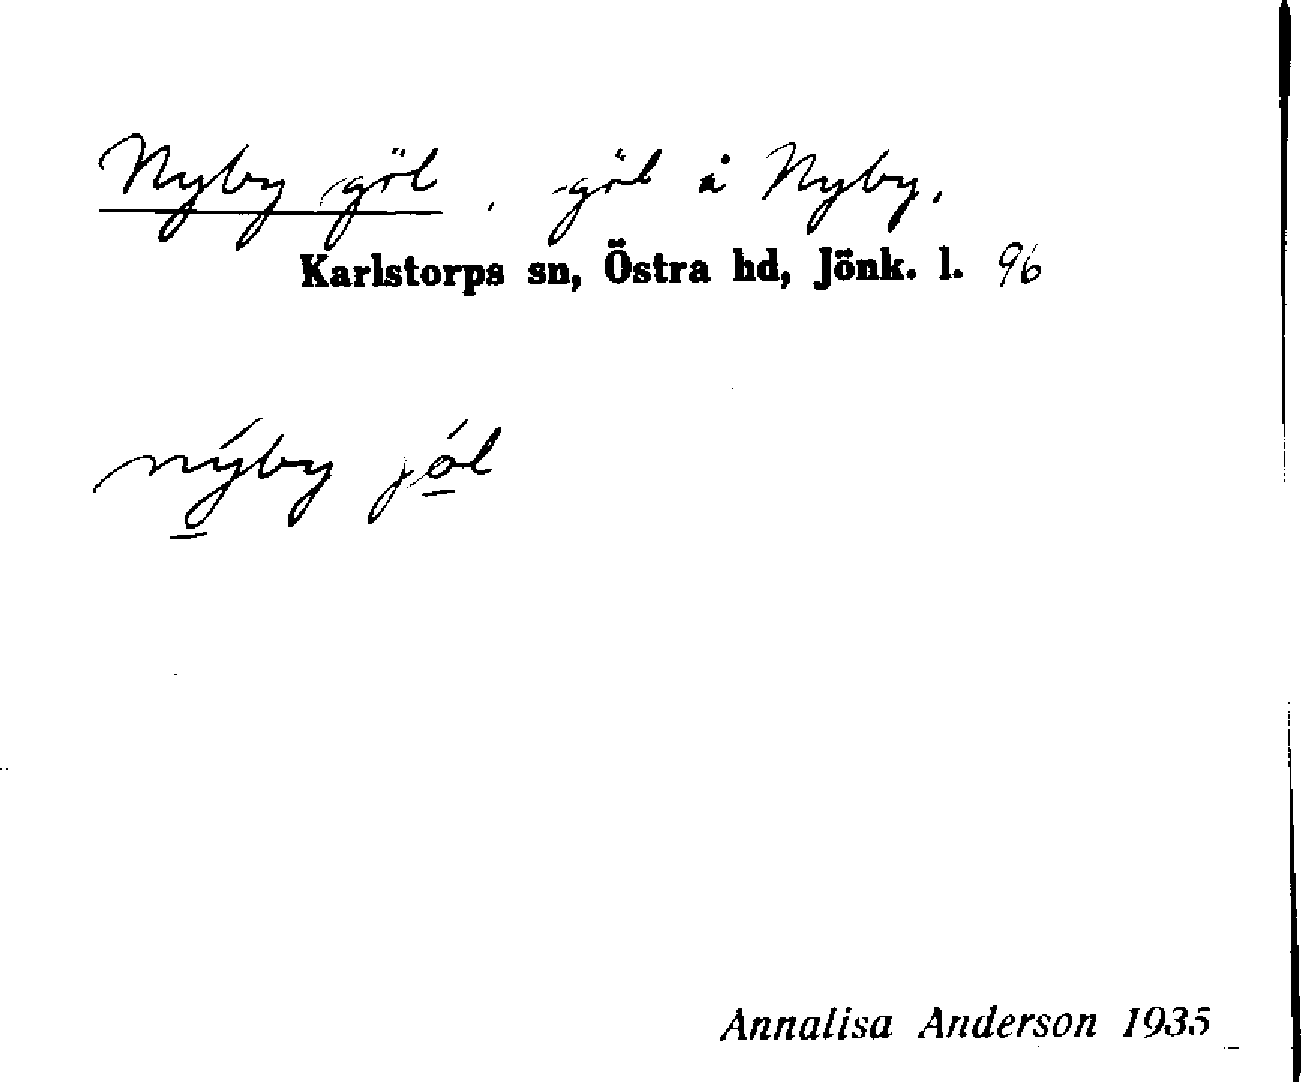 Nyby göl, göl å Nyby.
Karlstorps sn, Östra hd, Jönk. l. 96
nýby jól
Annalisa Anderson 1935